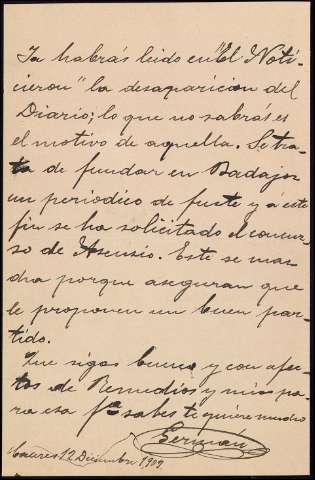 Ya habrás leido en "El Noti-
cierou" la desaparicion del
Diario; lo que no sabrás es
el motivo de aquella. Se tra-
ta de fundar en Badajoz
un periodico de fuste y á este
fin se ha solicitado el concur-
so de Asensio. Este se mar-
cha porque aseguran que
le proponen un buen par-
tido.
Que sigas bueno y con afec-
tos de Remedios y mios pa-
ra esa fª sabes te quiere mucho
Germán
Cáceres 12 Diciembre 1909.